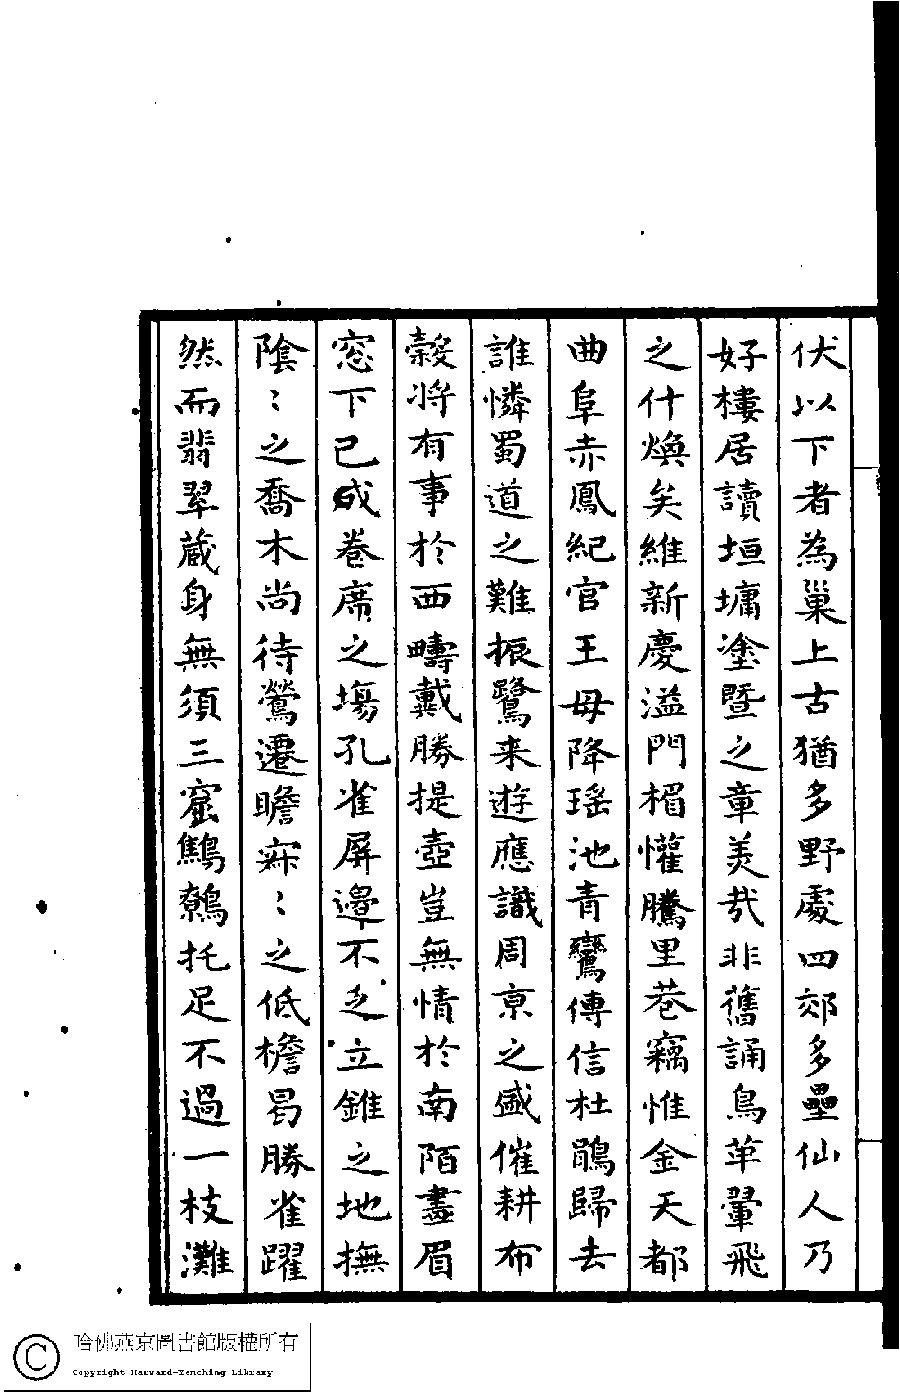 伏以下者為巢上古猶多野處四郊多壘仙人乃
好樓居讀垣墉塗暨之章美哉非舊誦鳥革翬飛
之什煥矣維新慶溢門楣懽騰里巷竊惟金天都
曲阜赤鳳紀官王母降瑤池青鸞傳信杜鵑歸去
誰憐蜀道之難振鷺来遊應識周京之盛催耕布
穀将有事於西疇戴勝提壺豈無情於南陌畫眉
窓下已成巻席之場孔雀屏邊不乏立錐之地撫
陰〻之喬木尚待鶯遷瞻寂〻之低檐曷勝雀躍
然而翡翠蔵身無須三窟鷦鷯托足不過一枝灘
哈佛燕京圖書館版權所有
Copyright Harvard-Yenching Library